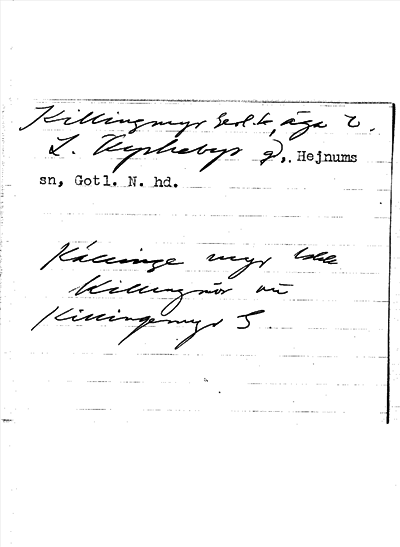 Killingmyr Geol. k, äga t.
L. Kyrkebys g, Hejnums
sn, Gotl. N. hd.
Källinge myr
Killingmör
Killingemyr S